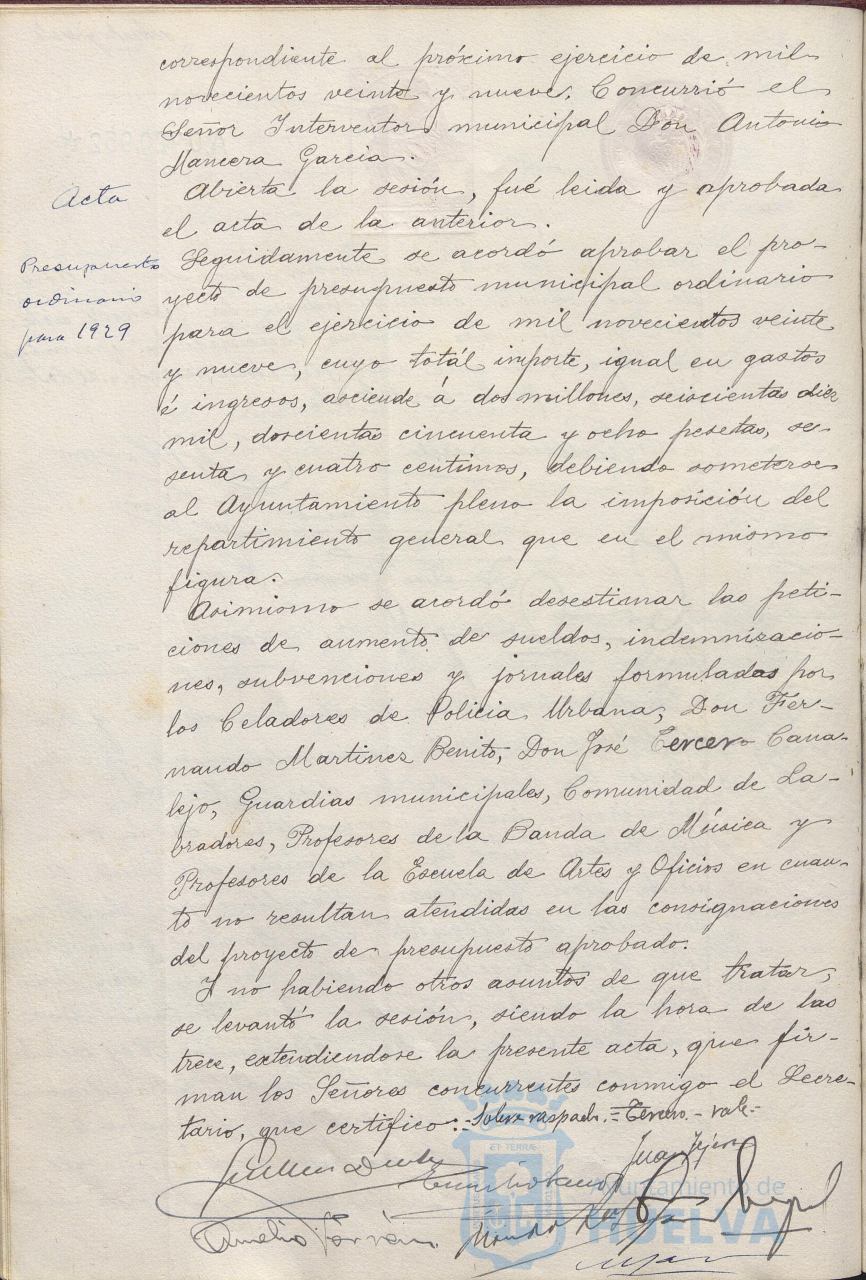 correspondiente al próximo ejercicio de mil
novecientos veinte y nueve. Concurrió el
Señor Interventor municipal Don Antonio
Mancera Garcia.
Acta
Abierta la sesión, fué leida y aprobada
el acta de la anterior.
Presupuesto
ordinario
para 1929
Seguidamente se acordó aprobar el pro-
yecto de presupuesto municipal ordinario
para el ejercicio de mil novecientos veinte
y nueve, cuyo totál importe, igual en gastos
é ingresos, asciende á dos millones, seiscientas diez
mil, doscientas cincuenta y ocho pesetas, se-
senta y cuatro centimos, debiendo someterse
al Ayuntamiento pleno la imposición del
repartimiento general que en el mismo
figura.
Asimismo se acordó desestimar las peti-
ciones de aumento de sueldos, indemnizacio-
nes, subvenciones y jornales formuladas por
los Celadores de Policia Urbana, Don Fer-
nando Martinez Benito, Don José Tercero Cana-
lejo, Guardias municipales, Comunidad de La-
bradores, Profesores de la Banda de Música y
Profesores de la Escuela de Artes y Oficios en cuan-
to no resultan atendidas en las consignaciones
del proyecto de presupuesto aprobado.
Y no habiendo otros asuntos de que tratar,
se levantó la sesión, siendo la hora de las
trece, extendiendose la presente acta, que fir-
man los Señores concurrentes conmigo el Secre-
tario, que certifico:- Sobre raspado.=Tercero.- vale.-
Ayuntamiento de
HUELVA